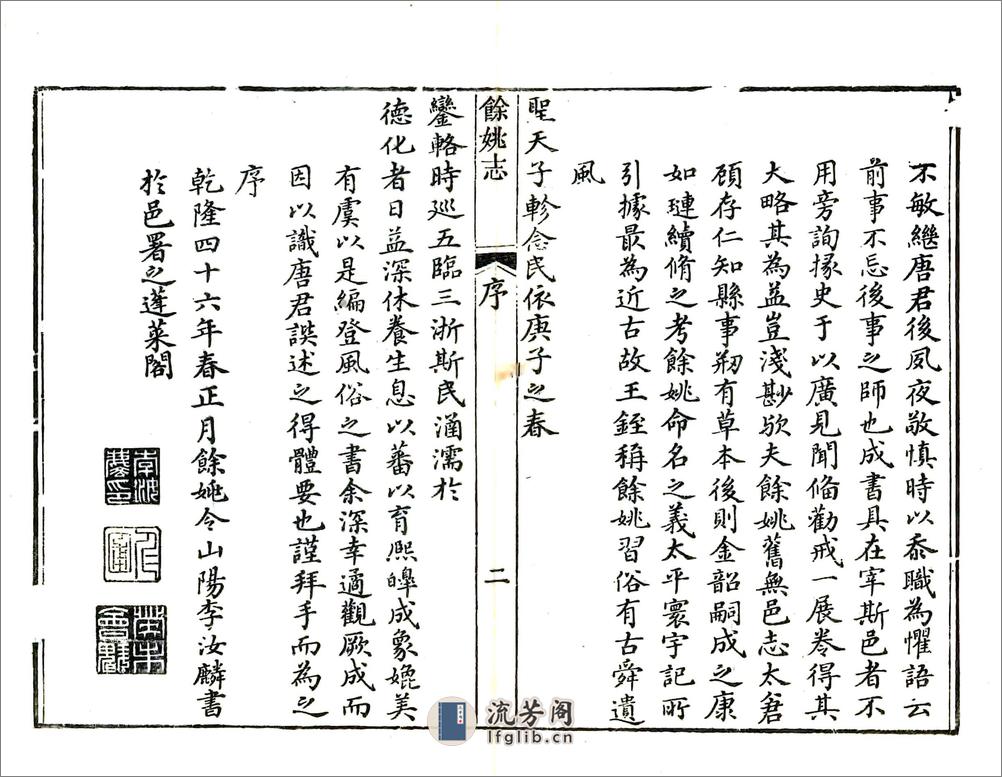 不敏繼唐君後夙夜敬慎時以忝職為懼語云
前事不忘後事之師也成書具在宰斯邑者不
用旁詢掾史于以廣見聞俻勸戒一展卷得其
大略其為益豈淺尠歟夫餘姚舊無邑志太倉
顧存仁知縣事剏有草本後則金韶嗣成之康
如璉續脩之考餘姚命名之義太平寰宇記所
引據最為近古故王銍稱餘姚習俗有古舜遺
風
聖天子軫念民依庚子之春
餘姚志
序
二
鑾輅時廵五臨三浙斯民涵濡於
德化者日益深休養生息以蕃以育熙皥成象媲美
有虞以是編登風俗之書余深幸遹觀厥成而
因以識唐君譔述之得體要也謹拜手而為之
序
乾隆四十六年春正月餘姚令山陽李汝麟書
於邑署之蓬萊閣
流芳阁
lfglib.cn